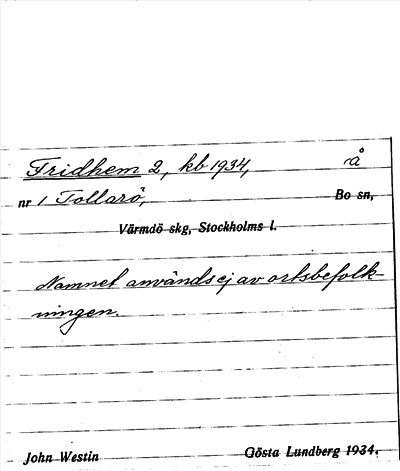 Fridhem 2, kb 1934, å
nr 1 Tollarö, Bo sn,
Värmdö skg, Stockholms l.
Namnet användsej av ortsbefolk-
ningen.
John Westin Gösta Lundberg 1934.